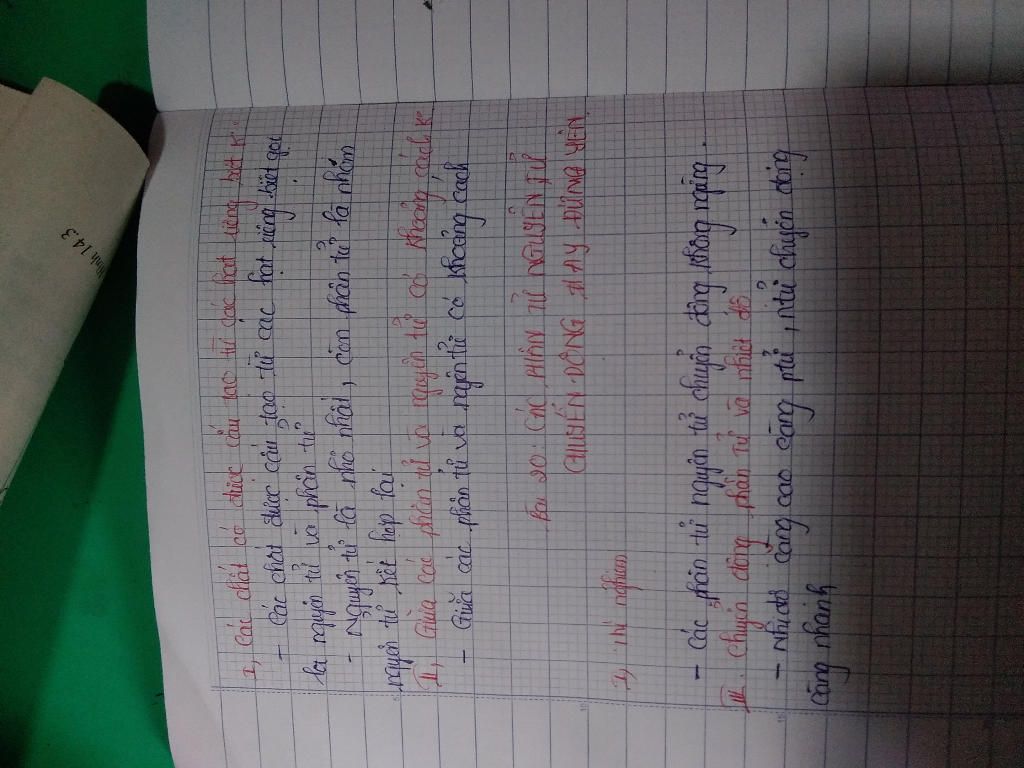 I, Các chất có được cấu tạo từ các hạt riêng biệt K°
- Các chất được cấu tạo từ các hạt riêng biệt gọi
là nguyên tử và phân tử
- Nguyên tử là nhỏ nhất, còn phân tử là nhóm
nguyên tử kết hợp lại
II, Giữa các phân tử và nguyên tử có khoảng cách K°
- Giữa các phân tử và ngyên tử có khoảng cách
Bài 20: CÁC PHÂN TỬ NGUYÊN TỬ
CHUYỂN ĐỘNG HAY ĐỨNG YÊN
I, Thí nghiệm
- Các phân tử nguyên tử chuyển động không ngừng.
III. Chuyển động phân tử và nhiệt độ
- Nhiệt độ càng cao càng ptử, ntử chuyển động
càng nhanh
143